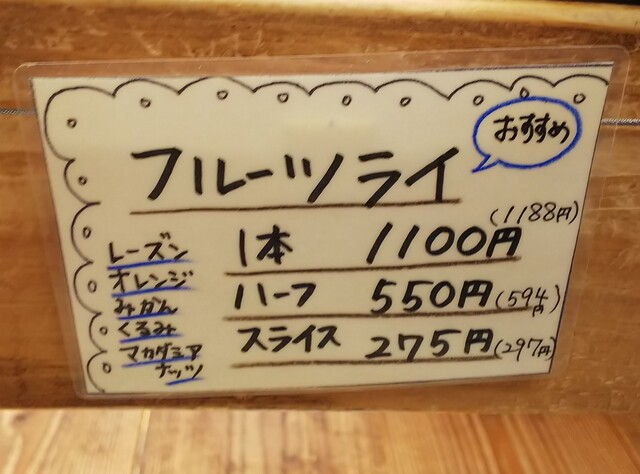 おすすめ
フルーツライ
(1188円)
1本 1100円
ハーフ 550円(594円)
スライス 275円(297円)
レーズン
オレンジ
みかん
くるみ
マカダミア
ナッツ